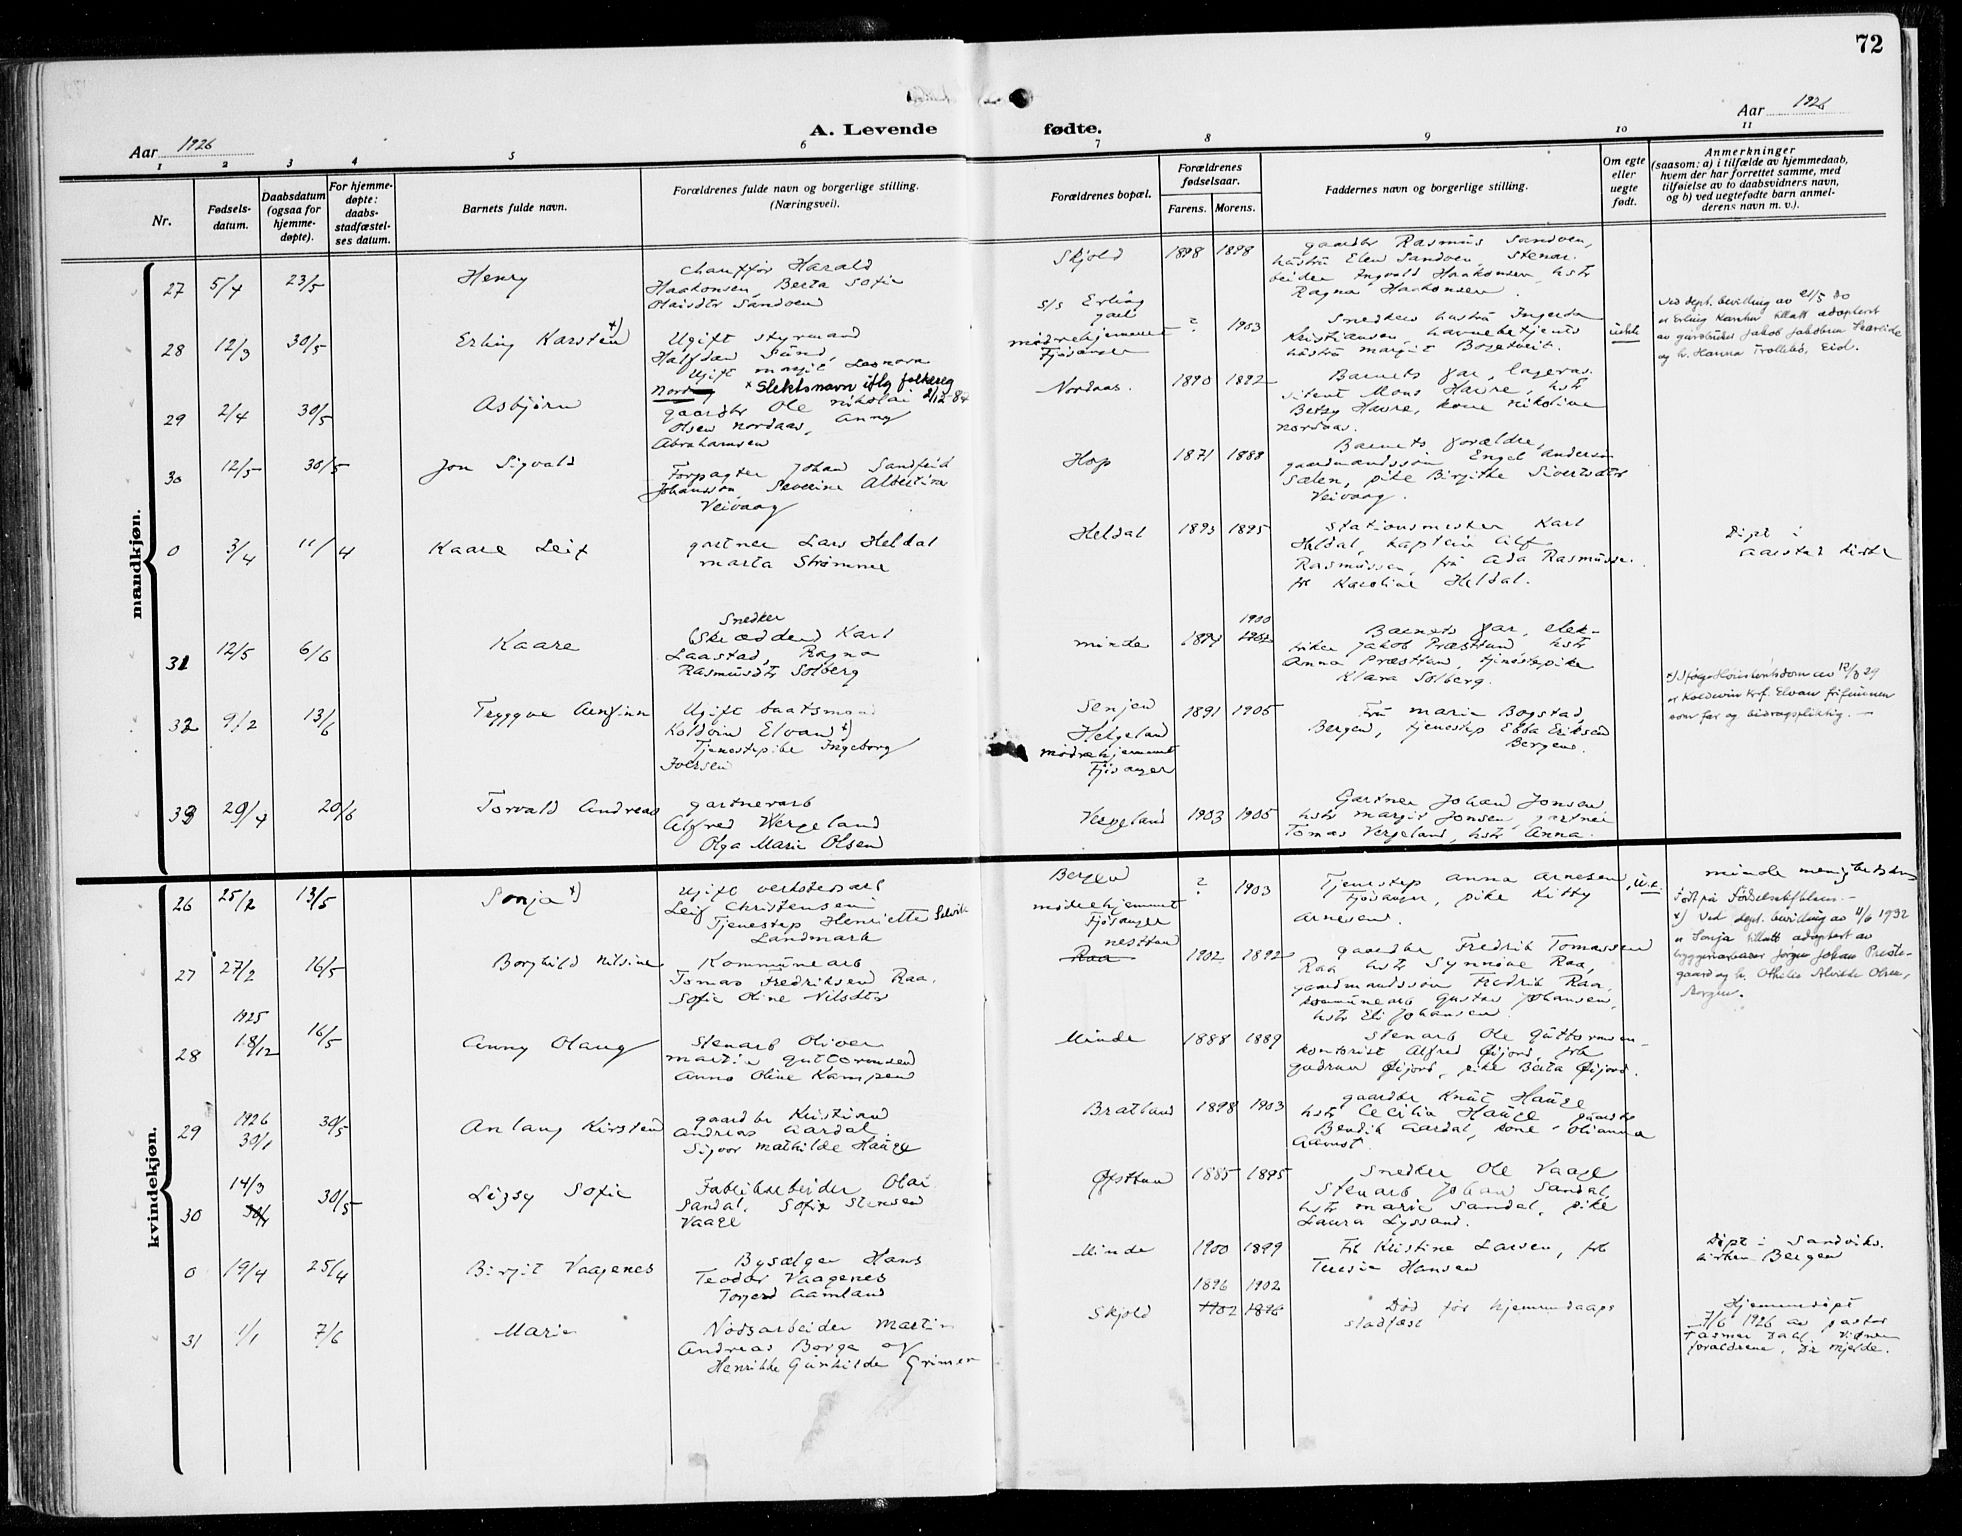 72
Aar 1926
A. Levende fødte.
Aar 1926
1 2 3 4 5 6 7 8 9 10 11
Nr.
Fødsels-
datum.
Daabsdatum
(ogsaa for
hjemme-
døpte).
For hjemme-
døpte:
daabs-
stadfæstel-
ses datum.
Barnets fulde navn.
Forældrenes fulde navn og borgerlige stilling.
(Næringsvei).
Forældrenes bopæl.
Forældrenes
fødselsaar.
Farens. Morens.
Faddernes navn og borgerlige stilling.
Om egte
eller
uegte
født.
Anmerkninger
(saasom: a) i tilfælde av hjemmedaab,
hvem der har forrettet samme, med
tilføielse av to daabsvidners navn,
og b) ved uegtefødte barn anmel-
derens navn m. v.).
mandkjøn.
27 5/4 23/5 Henry
chauffør Harald
Haakonsen, Berta Sofie
Olaisdtr Sandven
Skjold 1898 1898
gaardbr Rasmus Sandven,
hustru Elen Sandven, stenar
beider Ingvald Haakonsen, hstr
Ragna Haakonsen.
28 12/3 30/5 Erling Karsten x)
Ugift styrmand
Halfdan Sund,
Ugift Margit Leonora
Nord x Slektsnavn iflg folkereg
2/12-84
s/s Erling
Jarl
mødrehjemmet
Fjøsanger
? 1903
Snedkers hustru Ingerda
Kristiansen, havnebetjents
hustru Margit Bogetveit.
uekte
Ved dept. bevilling av 21/5 30
er Erling Karsten tillatt adoptert
av gårdbruker Jakob Jakobsen
og h. Hanna Trollebø, Eid.
29 2/4 30/5 Asbjørn
gaardbr Ole Nikolai
Olsen Nordaas, Anny
Abrahamsen
Nordaas. 1890 1892
Barnets far, lageras.
sistent Mons Havre, hstr
Betzy Havre, kone Nikoline
Nordaas.
30 12/5 30/5 Jon Sigvald
Forpagter Johan Sandfrid
Johansson, Severine Albertine
Veivaag
Hop 1871 1888
Barnets forældre,
gaardmandssøn Engel Andersen
Sælen, pike Birgithe Sivertsdtr
Veivaag.
0 3/4 11/4 Kaare Leif
gartner Lars Heldal
Marta Strømme
Heldal 1893 1895
Stationsmester Karl
Heldal, kaptein Alf
Rasmussen, fru Ada Rasmusse.
frk Karoline Heldal.
Døpt i
Aarstad kirke
31 12/5 6/6 Kaare
Snedker
(Skrædder) Karl
Laastad, Ragna
Rasmusdtr Solberg
Minde 1894 1900
Barnets far, elek-
triker Jakob Præsttun, hstr
Anna Præsttun, tjenestepike
Klara Solberg.
32 9/2 13/6 Tryggve Arnfinn
Ugift baatsmand
Koldvin Elvan x)
Tjenestepike Ingeborg
Iversen
Senjen
Helgeland
mødrehjemmet
Fjøsanger
1891 1905
Fru Marie Bogstad,
Bergen, tjenestep Ebba Eriksen
Bergen.
x) Ifølge Høiesteretsdom av 12/3 29
er Koldevin Krf. Elvan frifunnen
som far og bidragspliktig.
33 29/4 20/6 Torvald Andreas
gartnerarb
Alfred Wergeland
Olga Marie Olsen
Vergeland 1903 1905
Gartner Johan Jonsen
hstr Margit Jonsen, gartner
Tomas Vergeland, hstr Anna.
kvindekjøn.
26 25/2 13/5 Sonja x)
Ugift verkstedsarb
Leif Christensen
Tjenestep Henriette Selvik
Landmark
Bergen
mødrehjemmet
Fjøsanger
? 1903
Tjenestep Anna Arnesen
Fjøsanger, pike Kitty
Arnesen.
u.e.
Født på Fødselsstiftelsen.
x) Ved dept. bevilling av 11/6 1932
er Sonja tillatt adoptert av
bryggearbeider Jørgen Johan Preste-
gaard og h. Othilie Alvilde Olsen,
Bergen.
27 27/2 16/5 Borghild Nilsine
Kommunearb
Tomas Fredriksen Raa,
Sofie Oline Nilsdtr
Nesttun
Raa
1902 1892
gaardbr Fredrik Tomassen
Raa, hstr Synnøve Raa,
gaardmandssøn Fredrik Raa,
kommunearb Gustav Johansen,
hstr Eli Johansen.
28 1925 18/12 16/5 Anny Olaug
Stenarb Oliver
Martin Guttormsen
Anna Oline Kampen
Minde 1888 1889
Stenarb Ole Guttormsen
kontorist Alfred Øijord, frk
Gudrun Øijord, pike Berta Øijord.
29 1926 30/1 30/5 Anlaug Kirsten
gaardbr Kristian
Andreas Aardal.
Signor Mathilde Hauge
Bratland 1898 1903
gaardbr Knut Hauge
hstr Cecilia Hauge, gaardbr
Bendik Aardal, kone Olianna
30 14/3 30/4 30/5 Lizzy Sofie
Fabrikarbeider Olai
Sandal, Sofie Stensen
Vaage
Øvsttun 1885 1895
Snedker Ole Vaage
Stenarb Johan Sandal,
hstr Marie Sandal, pike
Laura Lyssand.
0 19/4 25/4 Birgit Vaagenes
Bysælger Hans
Teodor Vaagenes
Torjerd Aamland
Minde 1900 1899
Frk Kristine Larsen, frk
Teresie Hansen
Døpt i Sandviks.
kirken Bergen
31 1/1 7/6 Marie
Nødsarbeider Martin
Andreas Borge og
Henrikke Gunhilde Grimen
Skjold 1896 1902
1902 1896
Død før hjemmedaaps
stadfæst
Hjemmedøpt
7/6 1926 av pastor
Fasmer Dahl. Vidner
forældrene, Dr Mjelde.